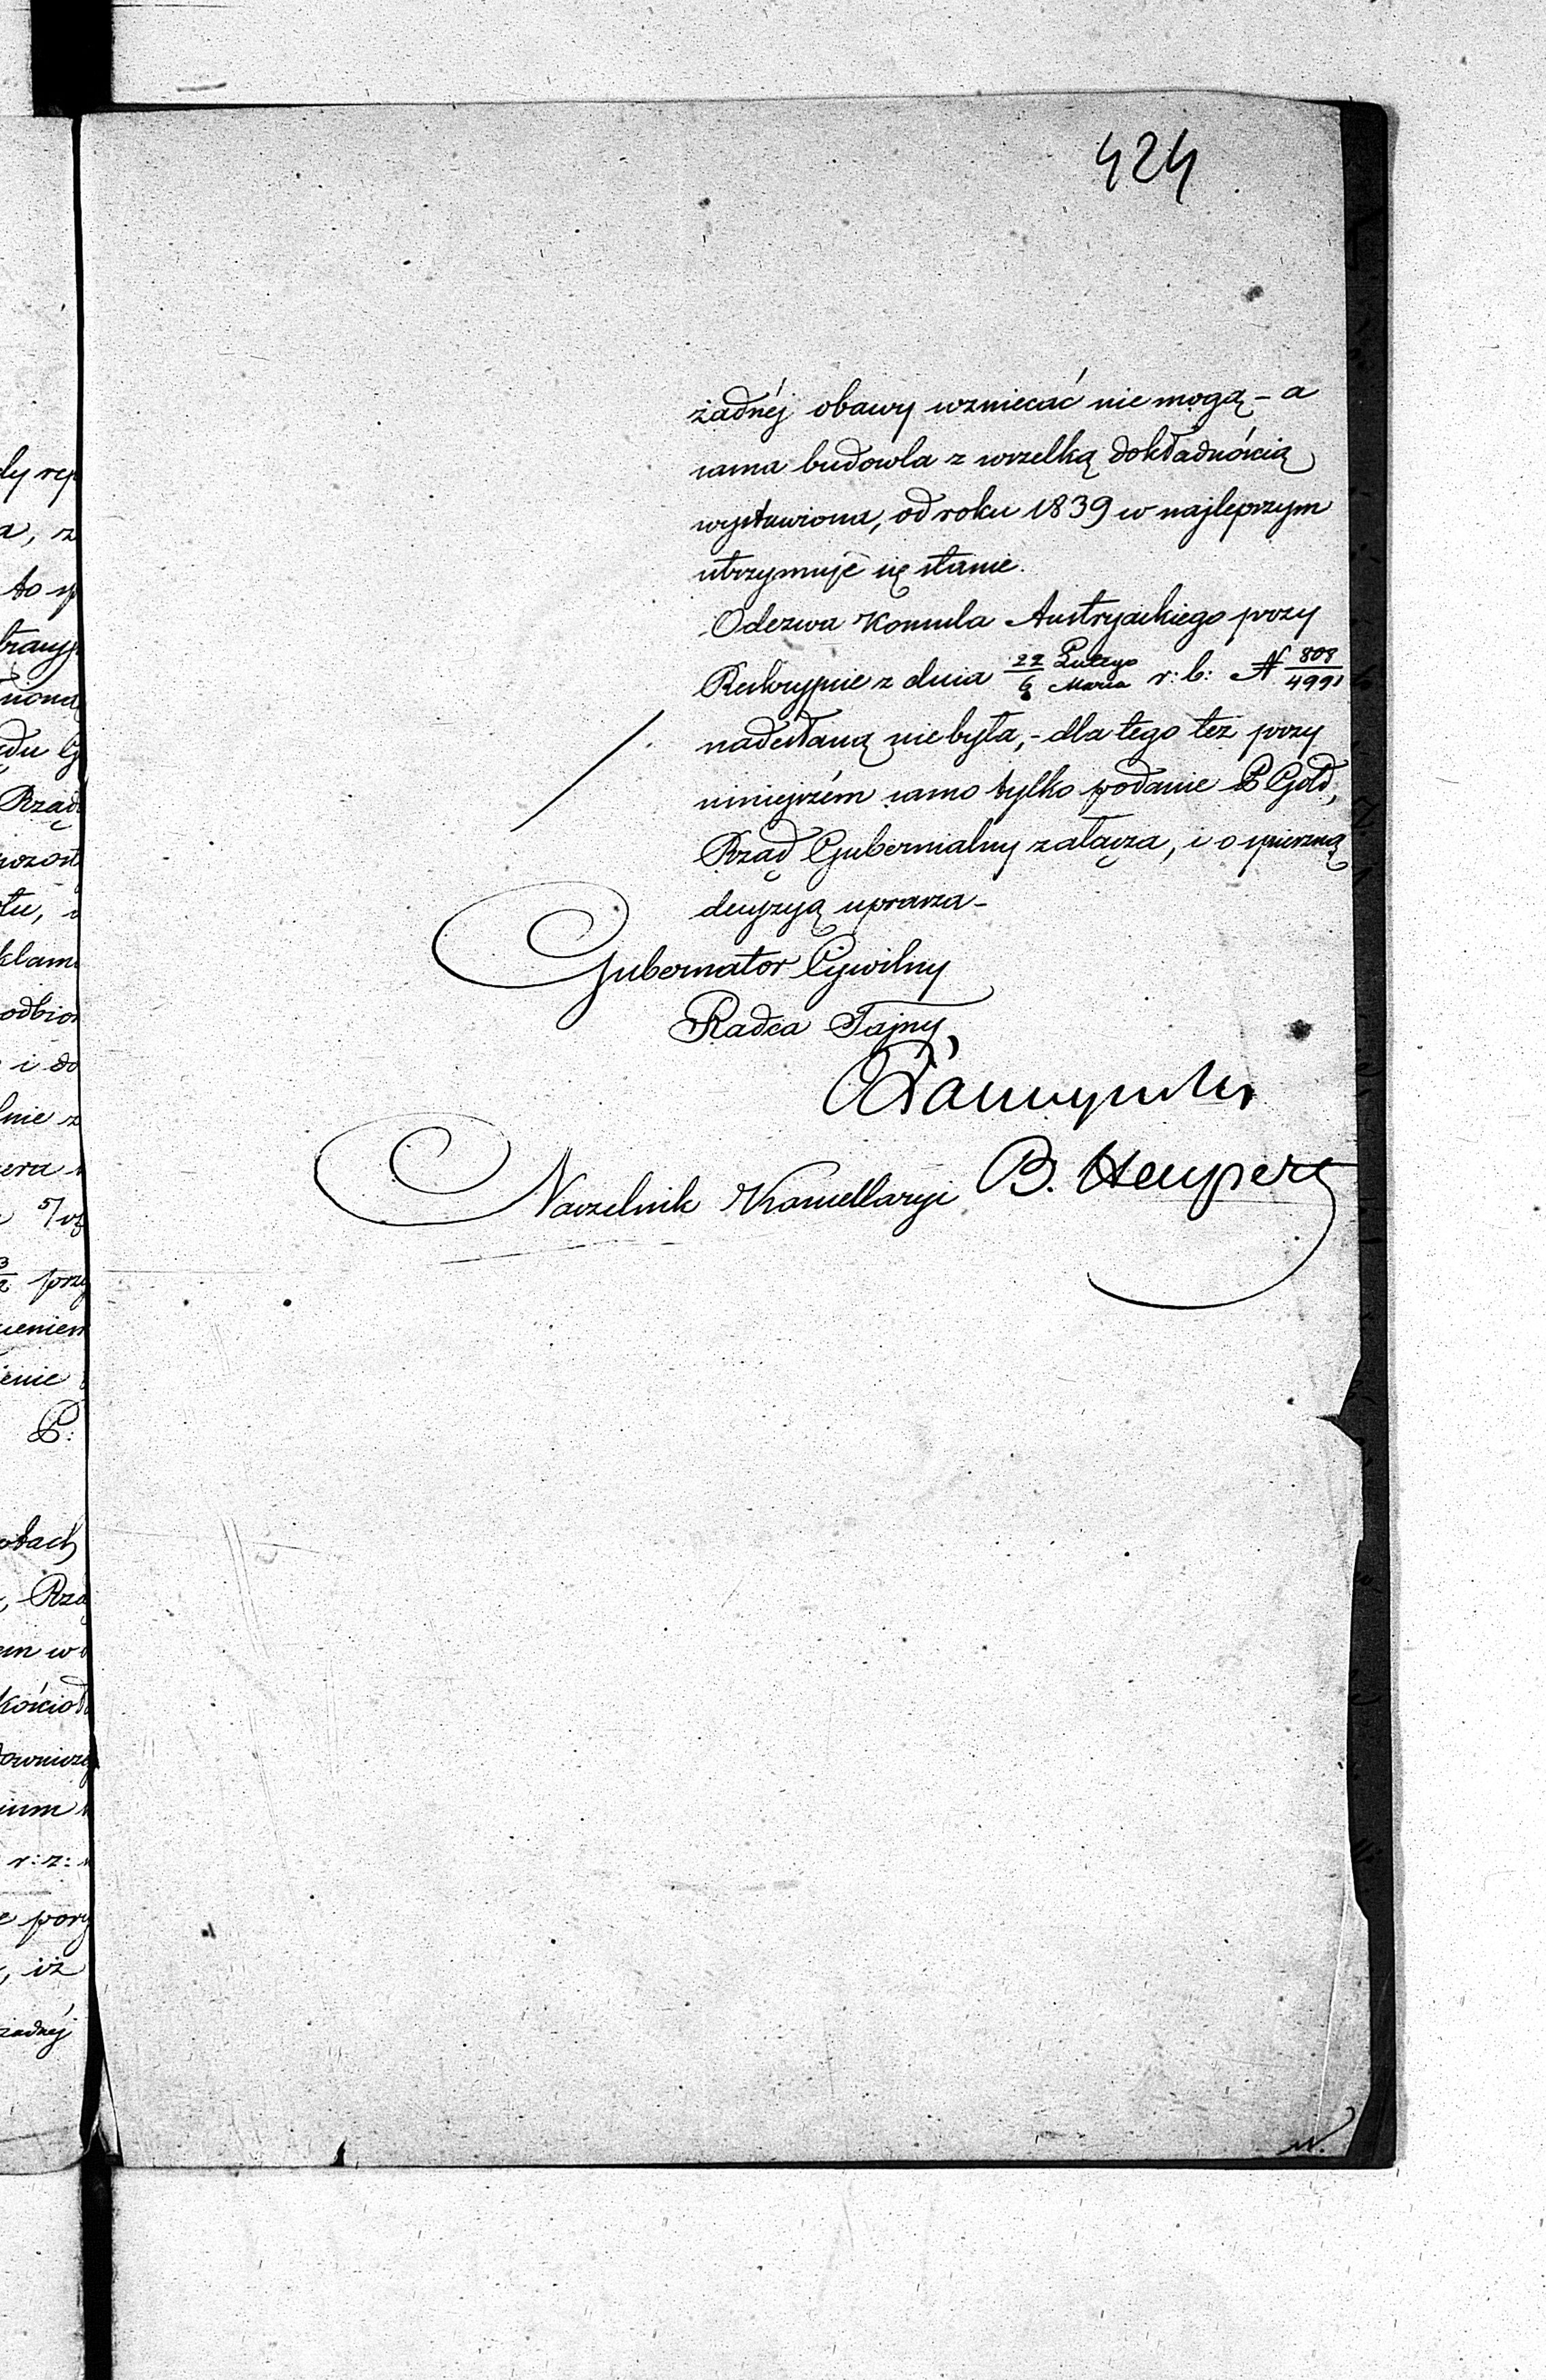 424
żadnéj obawy wzniecać nie mogą – a
sama budowla z wszelką dokładnością
wystawiona, od roku 1839 w najlepszym
utrzymuje się stanie.
Odezwa Konsula Austryackiego przy
Reskrypcie z dnia 22/6 Lutego/Marca r: b: N 808/4991
nadesłaną nie była, – dla tego też przy
niniejszém samo tylko podanie P Gold,
Rząd Gubernialny załącza, i o spieszną
decyzyą uprasza –
Gubernator Cywilny
Radca Tajny
Naczelnik Kancellaryi B.
to
Rząd
przy
P:
, Rzą
r: z:
, iż
żadnéj